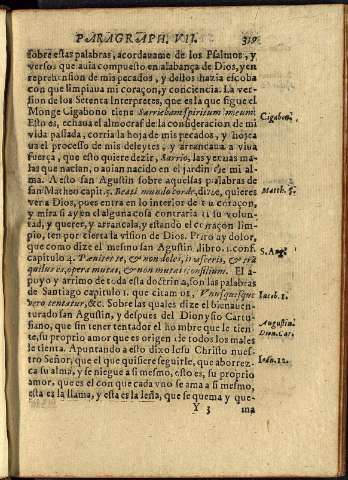 PARAGRAPH. VII. 319
sobre estas palabras, acordauame de los Psalmos, y
versos que auia compuesto en alabança de Dios, y en
reprehension de mis pecados, y dellos hazia escoba
con que limpiaua mi coraçon, y conciencia. La ver-
sion de los Setenta Interpretes, que es la que sigue el
Monge Cigabono tiene Sarriebam spiritum meum
Cigabon.
Esto es, echaua el almocraf de la consideracion de mi
vida passada, corria la hoja de mis pecados, y hojea
ua el processo de mis deleytes, y arrancaua a viua
fuerça, que esto quiere dezir, Sarrio, las yeruas ma-
las que nacian, o auian nacido en el jardin de mi al
ma. A esto san Agustin sobre aquellas palabras de
san Matheo capit. 5. Beati mundo corde, dize, quieres
Matth. 5.
ver a Dios, pues entra en lo interior de tu coraçon,
y mira si ay en el alguna cosa contraria a su volun-
tad, y querer, y arrancala, y estando el coraçon lim-
pio, ten por cierta la vision de Dios. Pero ay dolor,
que como dize el mesmo san Agustin, libro. 1. conf.
S. Aug.
capitulo 4. Pœnitet te, & non doles, irasceris, & trã
quilus es, opera mutas, & non mutas consilium. El a-
poyo y arrimo de toda esta doctrina, son las palabras
de Santiago capitulo 1. que citamos, Vnusquisque
Iacob. 1.
vero tentatur, &c. Sobre las quales dize el bienauen-
turado san Agustin, y despues del Dionysio Cartu-
Augustin.
siano, que sin tener tentador el hombre que le tien-
Dion. Car.
te, su proprio amor que es origen de todos los males
le tienta. Apuntando a esto dixo Iesu Christo nues-
tro Señor, que el que quisiere seguirle, que aborrez-
Ioan. 12.
ca su alma, y se niegue a si mesmo, esto es, su proprio
amor, que es el con que cada vno se ama a si mesmo,
esta es la llama, y esta es la leña, que se quema y que-
Y 3 ma